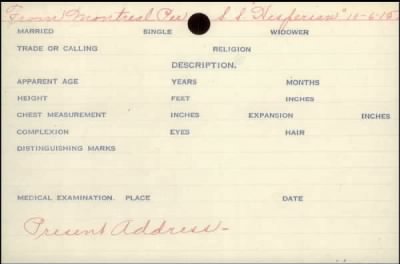 From Montreal Per S.S. Hesperian" 10-6-15
MARRIED SINGLE WIDOWER
TRADE OR CALLING RELIGION
DESCRIPTION.
APPARENT AGE YEARS MONTHS
HEIGHT FEET INCHES
CHEST MEASUREMENT INCHES EXPANSION INCHES
COMPLEXION EYES HAIR
DISTINGUISHING MARKS
MEDICAL EXAMINATION. PLACE DATE
Present Address-